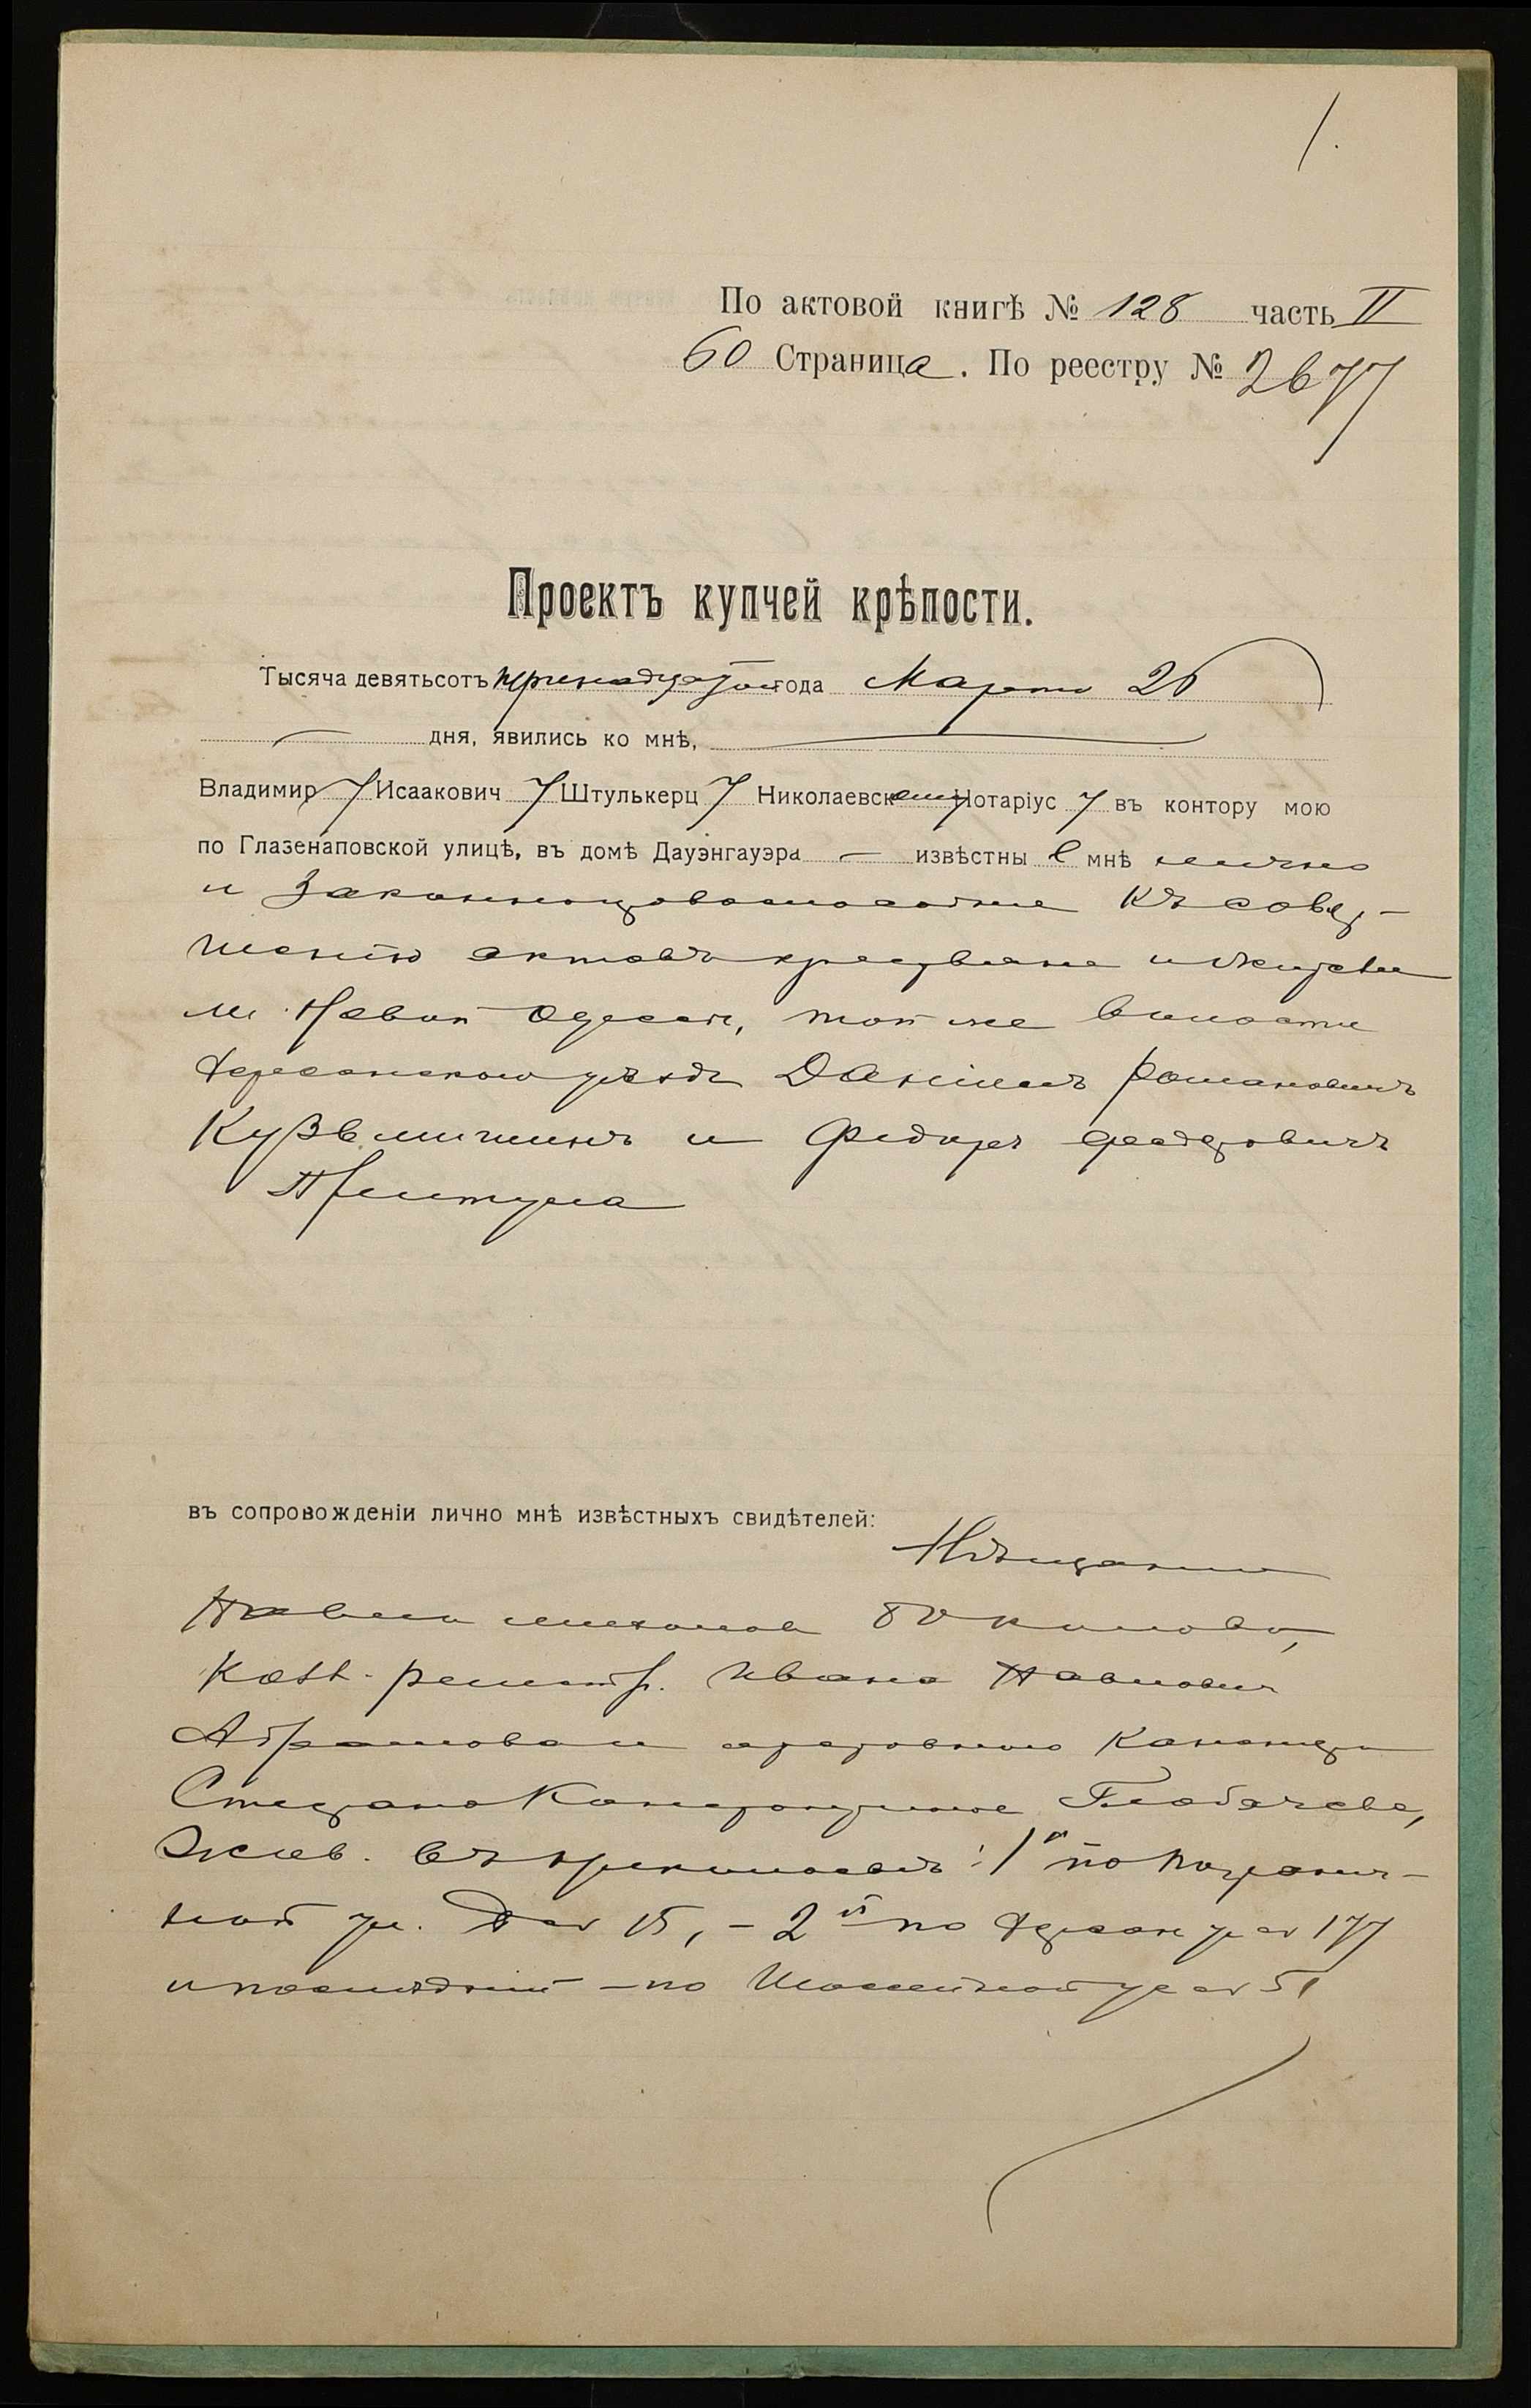 1.
По актовой книгѣ № 128 часть II
60 Страница. По реестру № 2677
Проектъ купчей крѣпости.
Тысяча девятьсотъ тринадцатого года Марта 26
дня, явились ко мнѣ,
Владимир Исаакович Штулькерц Николаевскому Нотаріус въ контору мою
по Глазенаповской улицѣ, въ домѣ Дауэнгауэра — извѣстные мнѣ лично
и законноправоспособные къ совер-
шенію актовъ крестьяне и
м. Новой Одессы, той же волости
Херсонскаго уѣзда Даніилъ Романовичъ
Кузьмичинъ и Федоръ Федоровичъ
Притула
въ сопровожденіи лично мнѣ извѣстныхъ свидѣтелей:
Мѣщанина
Павла
Колл. регистр. Ивана Павловича
Абрамова и
Степана Глобачева,
жив. въ Николаевѣ: 1й по Погранич-
ной ул. 15, – 2й по Херсон ул 177
и послѣдній – по Шоссейной ул 51